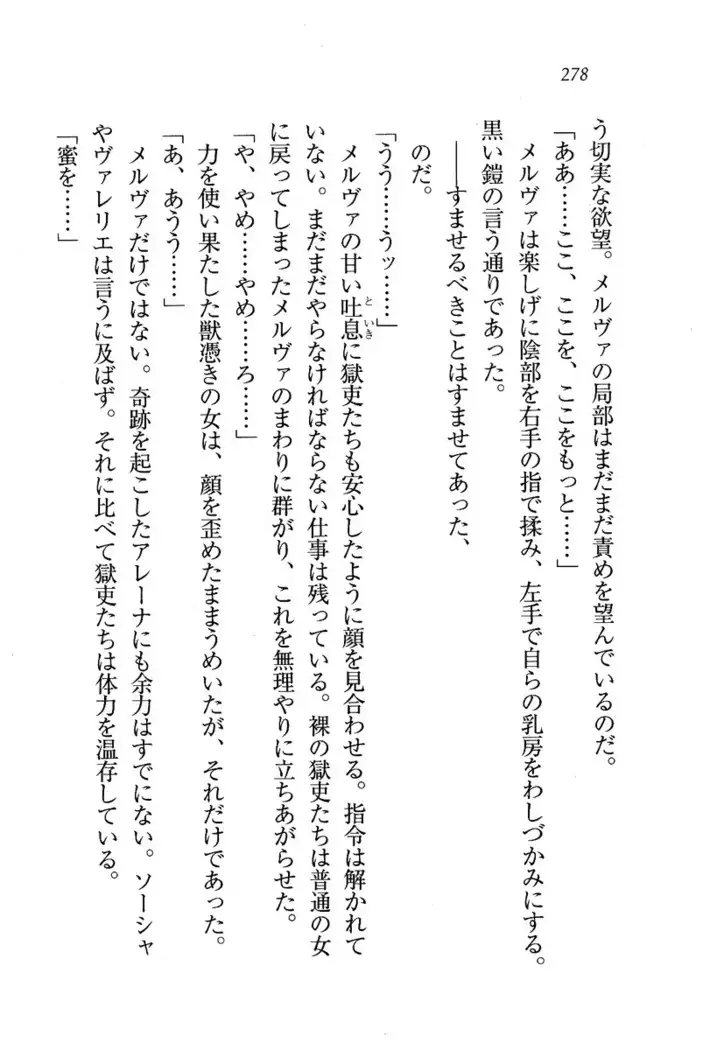 278
う切実な欲望。メルヴァの局部はまだまだ責めを望んでいるのだ。
「ああ……ここ、ここを、ここをもっと……」
メルヴァは楽しげに陰部を右手の指で揉み、左手で自らの乳房をわしづかみにする。
黒い鎧の言う通りであった。
――すませるべきことはすませてあった、
のだ。
「うう……うッ……」
メルヴァの甘い吐息に獄吏たちも安心したように顔を見合わせる。指令は解かれて
いない。まだまだやらなければならない仕事は残っている。裸の獄吏たちは普通の女
に戻ってしまったメルヴァのまわりに群がり、これを無理やりに立ちあがらせた。
「や、やめ……やめ……ろ……」
力を使い果たした獣憑きの女は、顔を歪めたままうめいたが、それだけであった。
「あ、あうう……」
メルヴァだけではない。奇跡を起こしたアレーナにも余力はすでにない。ソーシャ
やヴァレリエは言うに及ばず。それに比べて獄吏たちは体力を温存している。
「蜜を……」